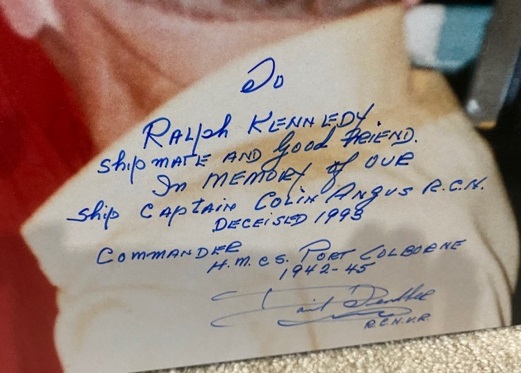 To
RALph KENNEDY.
ShipMATE AND Good FRIEND.
In MEMORY of OUR
Ship CAPTAIN COLIN ANGUS R.C.N.
DECEISED 1993
COMMANDER
H.M.C.S. PORT COLBORNE
1942-45
R.C.N.V.R